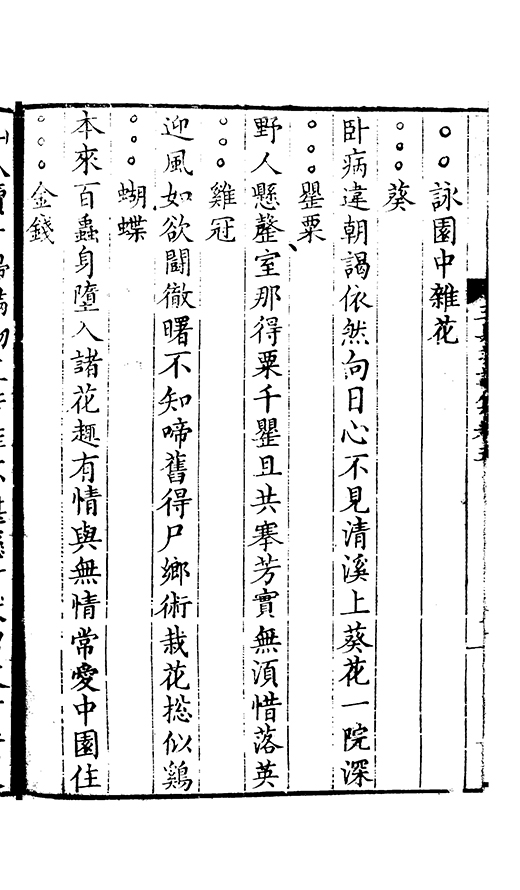 詠園中雜花
葵
卧病違朝謁依然向日心不見清溪上葵花一院深
罌粟
野人懸罄室那得粟千罌且共搴芳實無湏惜落英
雞冠
迎風如欲鬪徹曙不知啼舊得尸鄉術栽花揔似鷄
蝴蝶
本來百蟲身墮入諸花趣有情與無情常愛中園住
金錢